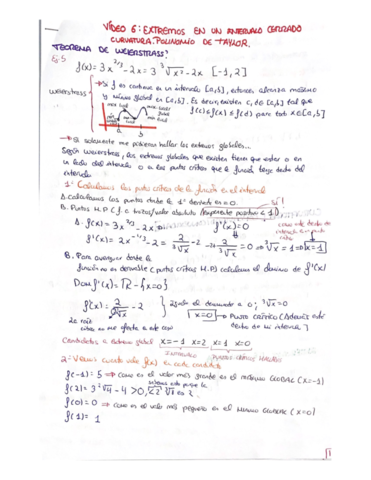 VÍDEO 6: EXTREMOS EN UN INTERVALO CERRADO
CURVATURA. POLINOMIO DE TAYLOR.
TEOREMA DE WEIERSTRASS?
Ej. 5
f(x) = 3x^{2/3} - 2x = 3 ∛x² - 2x [-1, 2]
Weierstrass
Si f es continua en un intervalo [a,b], entonces alcanza máximo
y mínimo global en [a,b]. Es decir, existen c, d ∈ [a,b] tal que
f(c) ≤ f(x) ≤ f(d) para todo x ∈ [a,b]
a b
Si solamente me pidieran hallar los extremos globales...
Según Weierstrass, los extremos globales que existen tienen que estar o en
un lado del intervalo o a los ptos críticos que la función tenga dentro del
intervalo.
1º Calculamos los ptos críticos de la función en el intervalo
A. Calculamos los puntos donde la 1ª derivada es = 0.
B. Puntos M.P (f a trozos/valor absoluto/exponente positivo < 1) Sí!
A. f(x) = 3x^{2/3} - 2x f'(x) = 0
f'(x) = 2x^{-1/3} - 2 = 2/∛x - 2 2/∛x - 2 = 0 ⇒ ∛x = 1 ⇒ x = 1
B. Para averiguar donde la
función no es derivable (ptos críticos M.P) calculamos el dominio de f'(x)
Dom f'(x) = ℝ - {x=0}
f'(x) = 2/∛x - 2 Igualo el denominador a 0; ∛x = 0
x = 0 → PUNTO CRÍTICO (Además esté
dentro de mi intervalo)
Candidatos a extremo global x = -1 x = 2 x = 1 x = 0
INTERVALO PUNTOS CRÍTICOS
2º Vemos cuanto vale f(x) en cada candidato
f(-1) = 5 ⇒ como es el valor más grande es el MÁXIMO GLOBAL (x=-1)
f(2) = 3 ∛4 - 4 > 0,
f(0) = 0 ⇒ como es el valor más pequeño es el MÍNIMO GLOBAL (x=0)
f(1) = 1